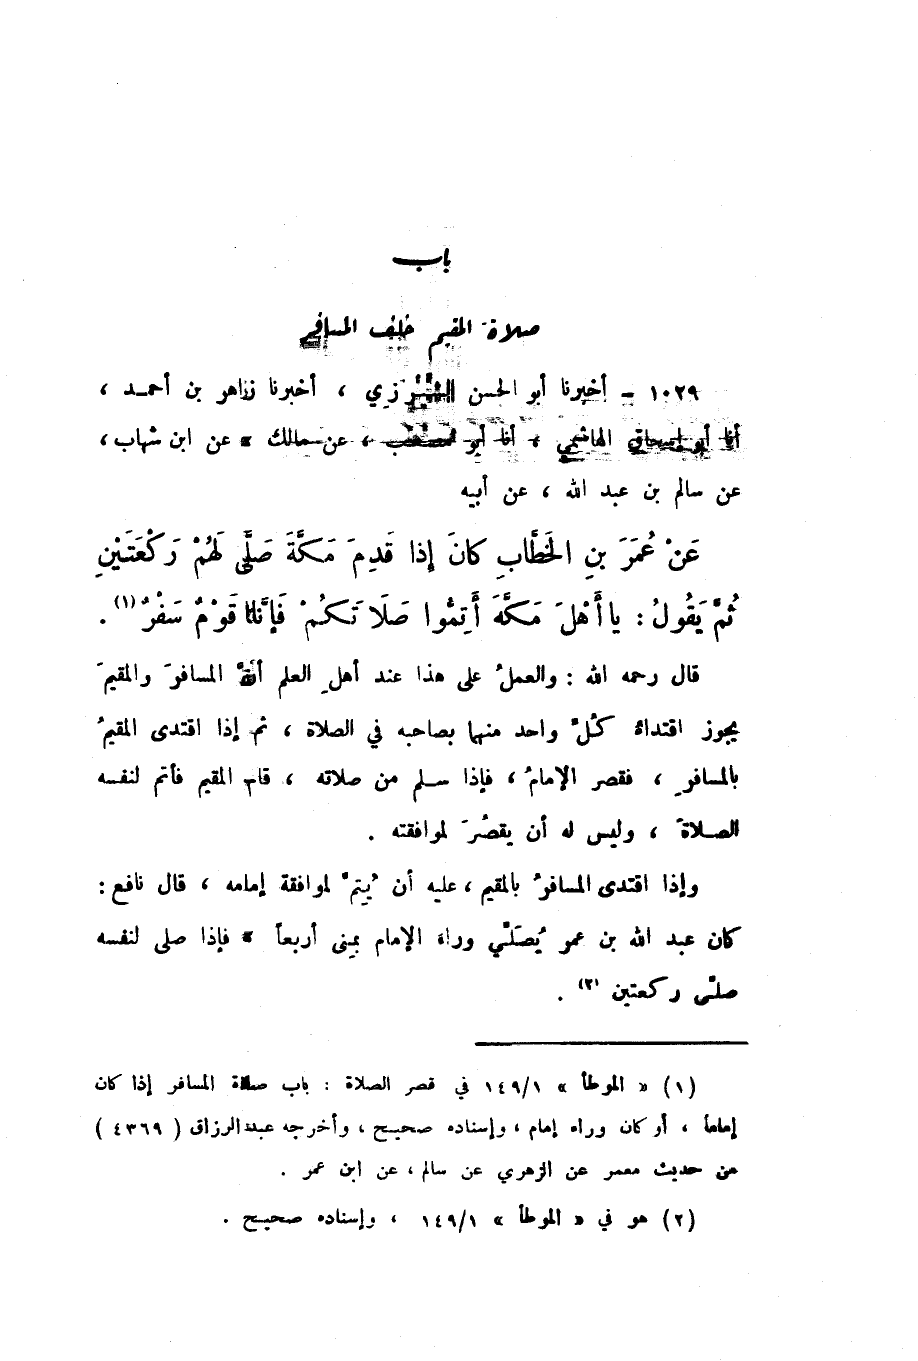 باب
صلاة المقيم خلف المسافر
١٠٢٩ - أخبرنا أبو الحسن الشيرزي ، أخبرنا زاهر بن أحمد ،
أنا أبو إسحاق الهاشمي ، أنا أبو مصعب ، عن مالك ، عن ابن شهاب ،
عن سالم بن عبد الله ، عن أبيه
عَنْ عُمَرَ بنِ الخَطَّابِ كانَ إذا قَدِمَ مَكَّةَ صَلَّى لَهُمْ رَكْعَتَيْنِ
ثُمَّ يَقُولُ : يا أَهْلَ مَكَّةَ أَتِمُّوا صَلَاتَكُمْ فَإنَّا قَوْمٌ سَفْرٌ (١) .
قال رحمه الله : والعملُ على هذا عند أهلِ العلم أنَّ المسافرَ والمقيمَ
يجوز اقتداءُ كلِّ واحد منهما بصاحبه في الصلاة ، ثم إذا اقتدى المقيمُ
بالمسافرِ ، فقصر الإمامُ ، فإذا سلم من صلاته ، قام المقيم فأتم لنفسه
الصلاةَ ، وليس له أن يقصُرَ لموافقته .
وإذا اقتدى المسافرُ بالمقيم ، عليه أن يُتمَّ لموافقة إمامه ، قال نافع :
كان عبد الله بن عمر يُصلِّي وراء الإمام بمنى أربعاً ، فإذا صلى لنفسه
صلَّى ركعتين (٢) .
(١) « الموطأ » ١٤٩/١ في قصر الصلاة : باب صلاة المسافر إذا كان
إماماً ، أو كان وراء إمام ، وإسناده صحيح ، وأخرجه عبد الرزاق ( ٤٣٦٩ )
من حديث معمر عن الزهري عن سالم ، عن ابن عمر .
(٢) هو في « الموطأ » ١٤٩/١ ، وإسناده صحيح .